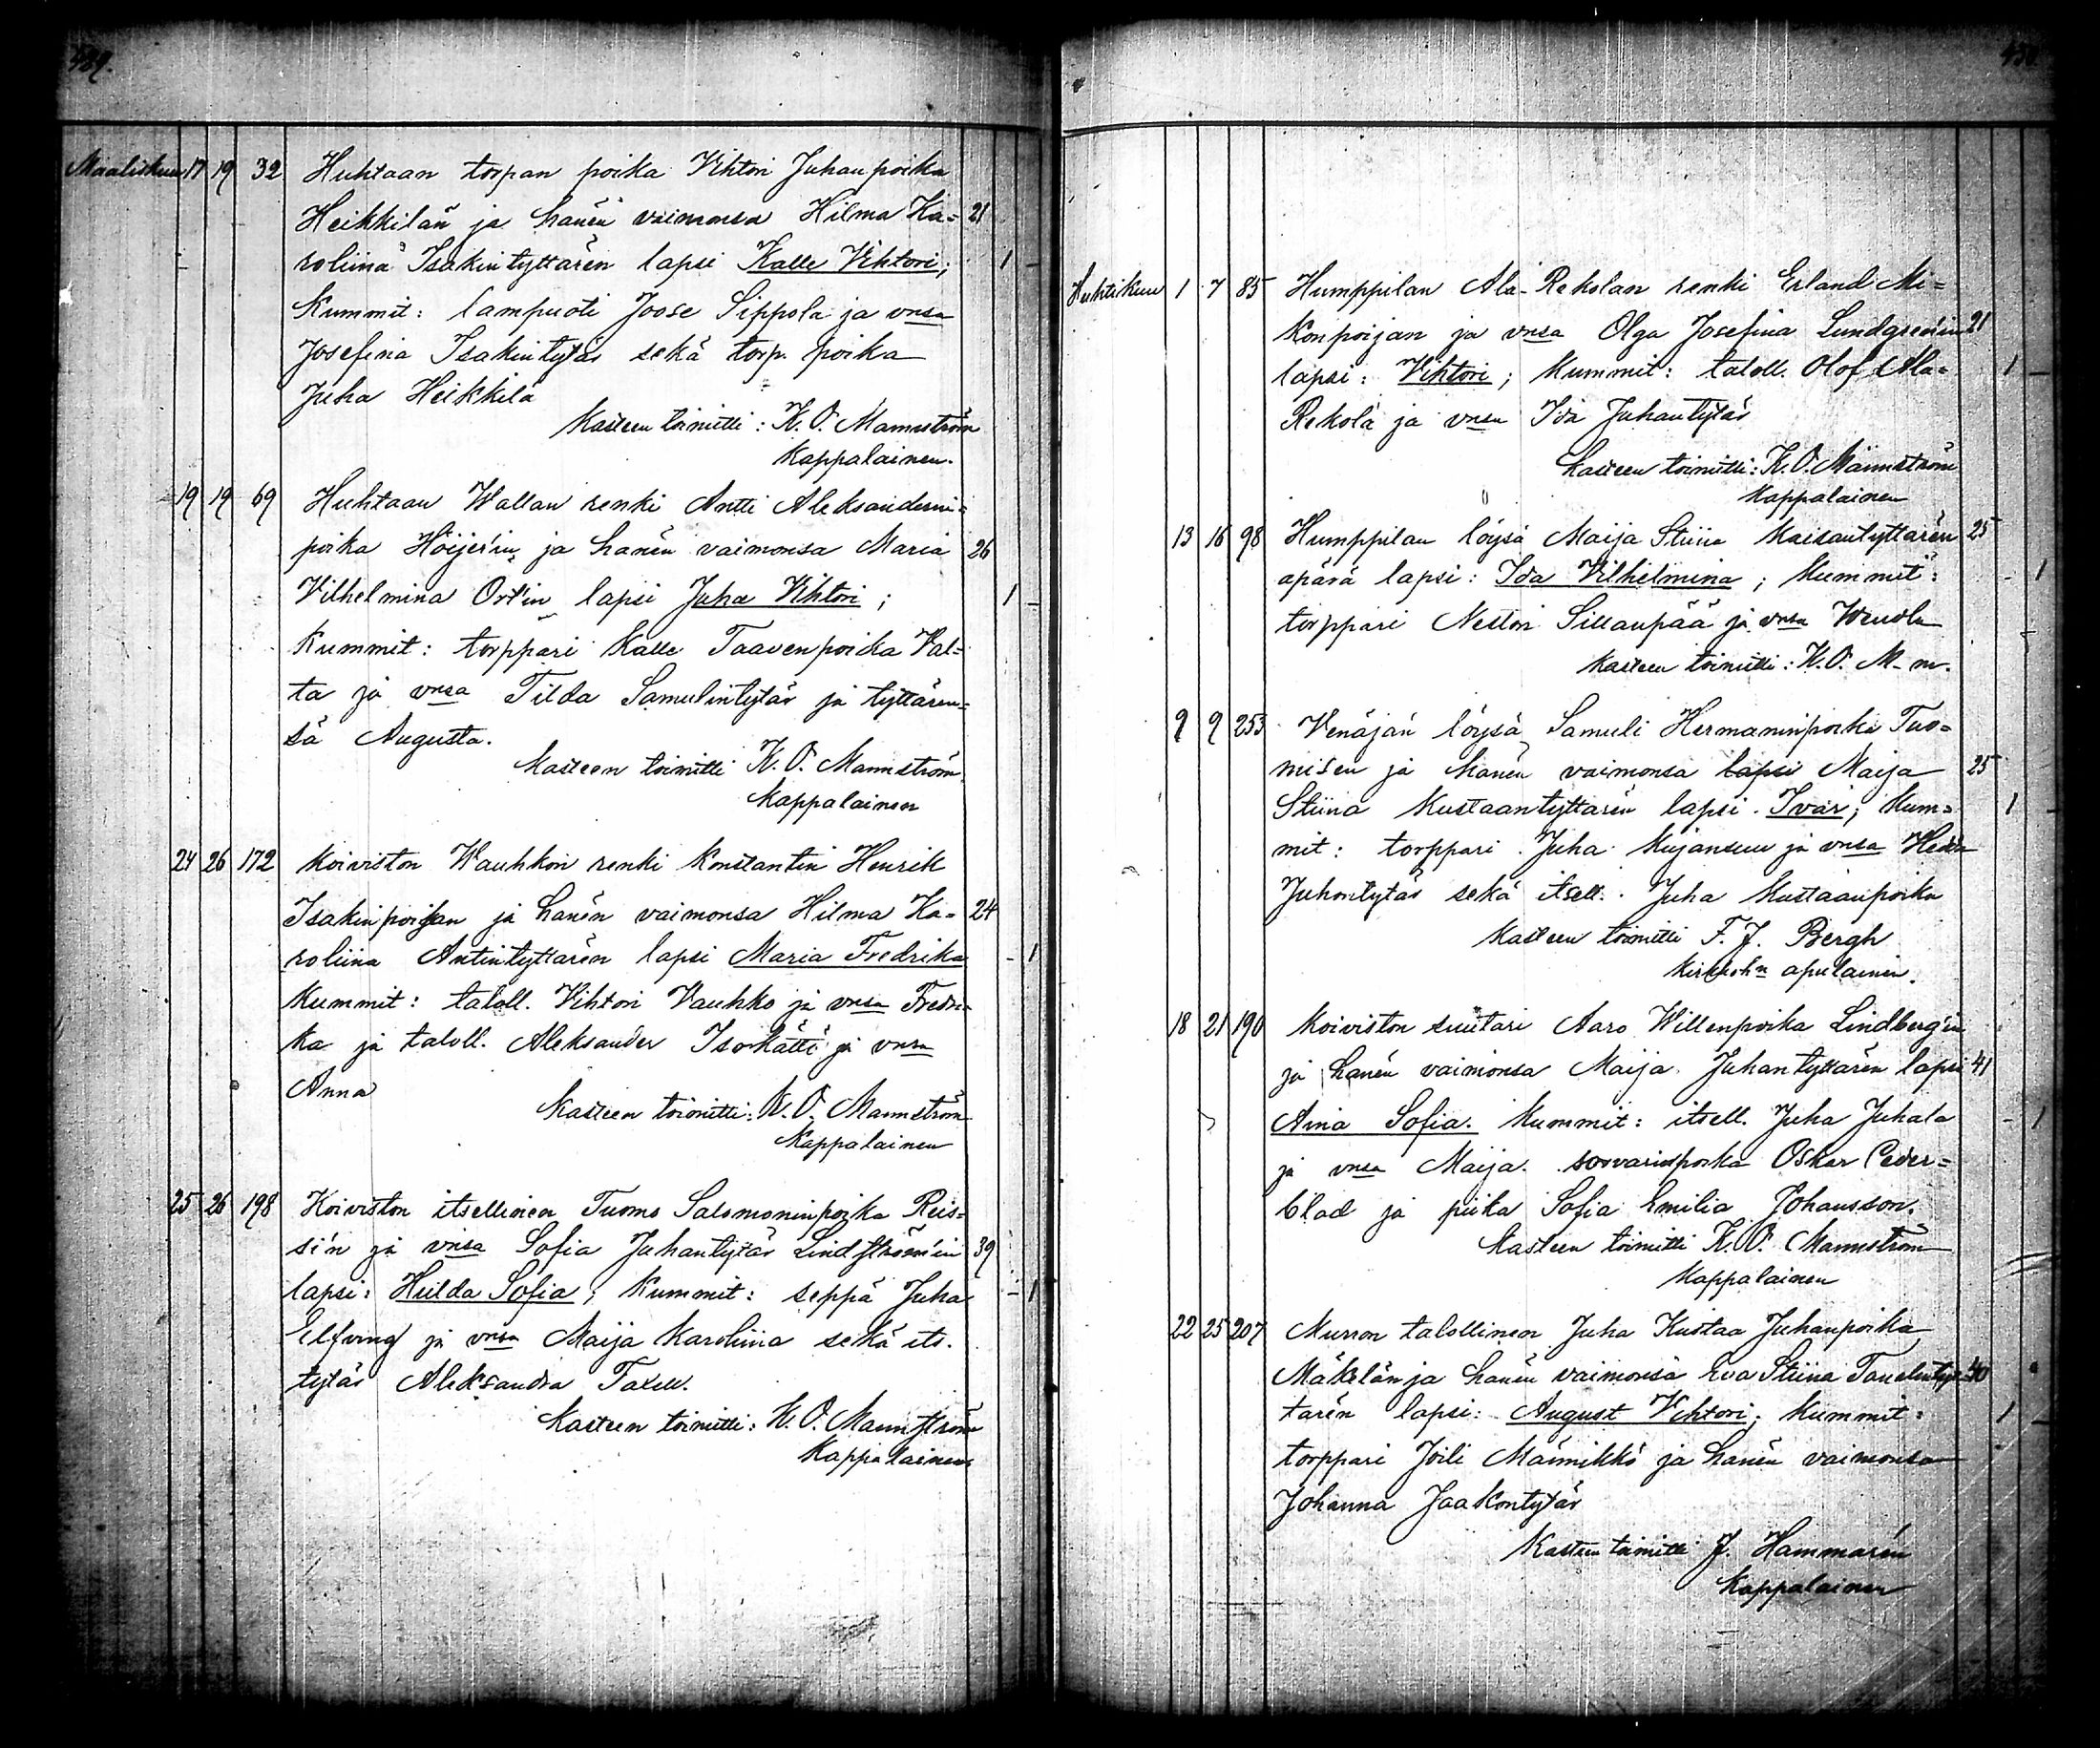 Maaliskuu 17 19 32 Huhtaan torpan poika Vihtori Juhanpoika
Heikkilän ja hänen vaimonsa Hilma Ka= 21
roliina Isakintyttären lapsi Kalle Vihtori; 1
Kummit: lampuoti Joose Sippola ja vnsa
Josefina Isakintytär sekä torp. poika
Juha Heikkilä
Kasteen toimitti: K. O. Mannström
Kappalainen.
19 19 69 Huhtaan Wallan renki Antti Aleksanderin=
poika Höijer'in ja hänen vaimonsa Maria 26
Vilhelmina Ort'in lapsi Juha Vihtori; 1
Kummit: torppari Kalle Taavenpoika Val=
ta ja vnsa Tilda Samulintytär ja tyttären=
sä Augusta.
Kasteen toimitti K. O. Mannström
Kappalainen
24 26 172 Koiviston Wauhkon renki Konstantin Henrik
Isakinpoijan ja hänen vaimonsa Hilma Ka= 24
roliina Antintyttären lapsi Maria Fredrika 1
Kummit: taloll. Vihtori Vauhko ja vnsa Fredri=
ka ja taloll. Aleksander Isokätti ja vnsa
Anna
Kasteen toimitti: K. O. Mannström
Kappalainen
25 26 198 Koiviston itsellinen Tuomo Salomoninpoika Reis=
si'n ja vnsa Sofia Juhantytär Lindström'in 39
lapsi: Hilda Sofia; Kummit: seppä Juha 1
Elfving ja vnsa Maija Karoliina sekä its.
tytär Aleksandra
Kasteen toimitti: K. O. Mannström
Kappalainen
Huhtikuu 1 7 85 Humppilan Ala-Rekolan renki Erland Mi=
konpoijan ja vnsa Olga Josefina Lundgren'in 21
lapsi: Vihtori; Kummit: taloll. Olof Ala= 1
Rekola ja vnsa Ida Juhantytär
Kasteen toimitti: K. O. Mannström
Kappalainen
13 16 98 Humppilan löysä Maija Stiina Maisantyttären 25
äpärä lapsi: Ida Vilhelmina; Kummit: 1
torppari Nestori Sillanpää ja vnsa Wendla
Kasteen toimitti: K. O. M-m.
9 9 253 Venäjän löysä Samuli Hermanninpoika Tuo=
misen ja hänen vaimonsa lapsi Maija 25
Stiina Kustaantyttären lapsi. Ivar; Kum= 1
mit: torppari Juha Kiijansuu ja vnsa Hedda
Juhontytär sekä itsell. Juha Kustaanpoika
Kasteen toimitti F. J. Bergh
Kirkkoh:n apulainen.
18 21 190 Koiviston suutari Aaro Willenpoika Lindberg'in
ja hänen vaimonsa Maija Juhantyttären lapsi 41
Aina Sofia. Kummit: itsell. Juha Juhala 1
ja vnsa Maija. sorvarinpoika Oskar Ceder=
blad ja piika Sofia Emilia Johansson.
Kasteen toimitti K. O. Mannström
Kappalainen
22 25 207 Murron talollinen Juha Kustaa Juhanpoika
Mäkelän ja hänen vaimonsa Eva Stiina Tanelintyt= 40
tären lapsi: August Vihtori; Kummit: 1
torppari Joili Männikkö ja hänen vaimonsa
Johanna Jaakontytär
Kasteen toimitti J. Hammarén
Kappalainen